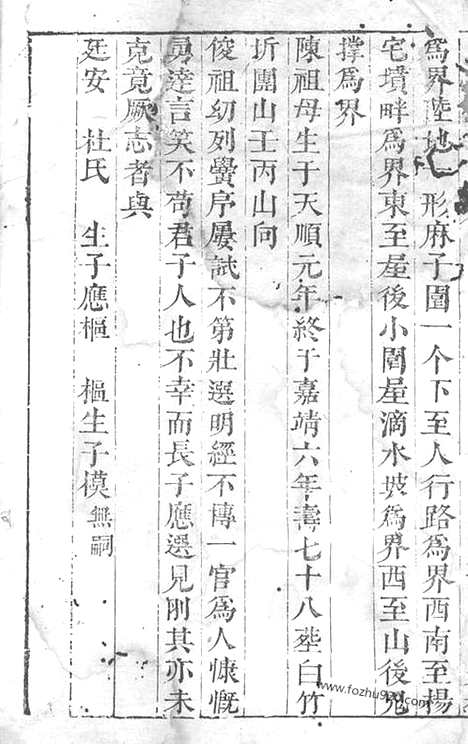 為界陸地一形麻子園一个下至人行路為界西南至楊
宅墳畔為界東至屋後小園屋滴水坡為界西至山後兇
撑為界
陳祖母生于天順元年終于嘉靖六年壽七十八塟白竹
圻團山壬丙山向
俊祖幼列黌序屢試不第壯選明經不博一官為人慷慨
勇逹言笑不苟君子人也不幸而長子應選見刖其亦未
克竟厥志者與
廷安 杜氏 生子應樞 樞生子模無嗣
www.fozhu920.com